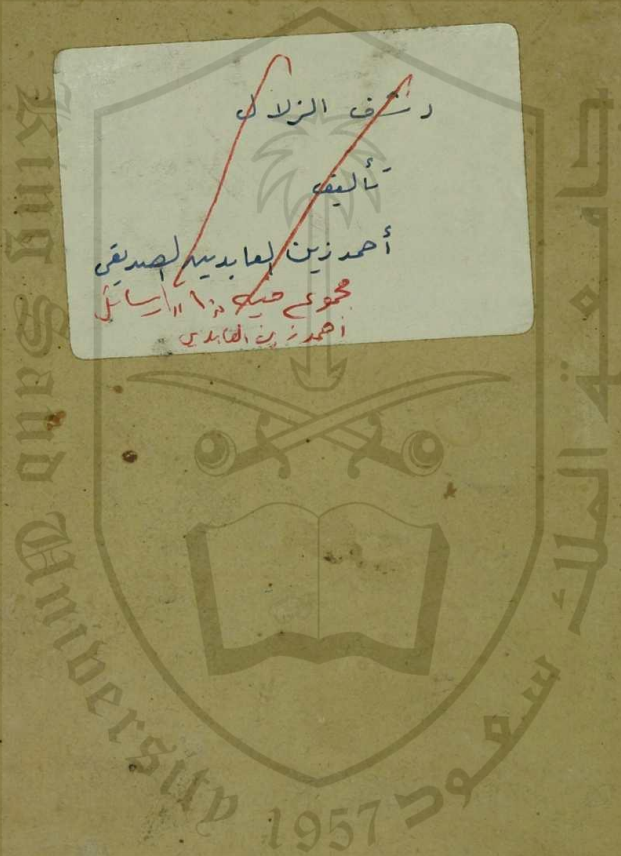 رشف الزلال
تأليف
أحمد زين العابدين الصديقي
مجموع فيه رسائل
أحمد زين العابدين
King Saud University
1957
جامعة الملك سعود